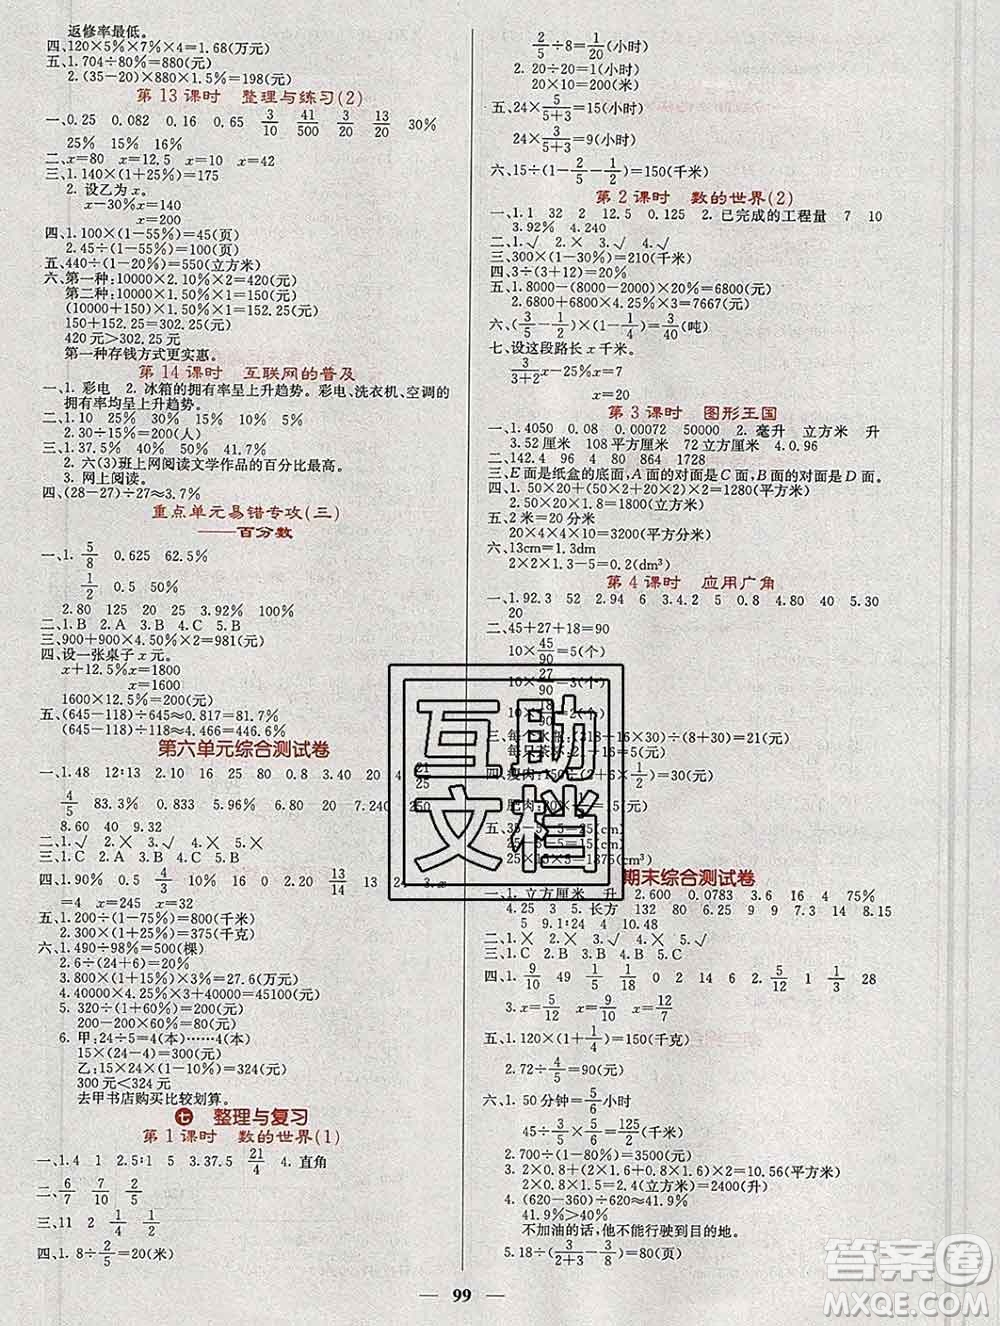 返修率最低。
四、120×5%×7%×4=1.68(万元)
五、1.704÷80%=880(元)
2.(35-20)×880×1.5%=198(元)
第13课时 整理与练习(2)
一、0.25 0.082 0.16 0.65 3/10 41/500 3/4 13/20 30%
25% 15% 16%
二、x=80 x=12.5 x=10 x=42
三、1.140×(1+25%)=175
2. 设乙为x。
x-30%x=140
x=200
四、1.100×(1-55%)=45(页)
2.45÷(1-55%)=100(页)
五、440÷(1-20%)=550(立方米)
六、第一种:10000×2.10%×2=420(元)
第二种:10000×1.5%×1=150(元)
(10000+150)×1.5%×1=152.25(元)
150+152.25=302.25(元)
420元>302.25元
第一种存钱方式更实惠。
第14课时 互联网的普及
一、1. 彩电 2. 冰箱的拥有率呈上升趋势。彩电、洗衣机、空调的
拥有率均呈上升趋势。
二、1.10 25% 20% 30% 15%
2.30÷15%=200(人)
三、1.37.5% 40% 50% 41.7%
2. 六(3)班上网阅读文学作品的百分比最高。
3. 网上阅读。
四、(28-27)÷27≈3.7%
重点单元易错专攻(三)
——百分数
一、1. 5/8 0.625 62.5%
1/2 0.5 50%
2.80 125 20 25 3.92% 120
二、1.B 2.A 3.B 4.A 5.B
三、900+900×4.5%×2=981(元)
四、设一张桌子x元。
x+12.5%x=1800
x=1600
1600×12.5%=200(元)
五、(645-118)÷645≈0.817=81.7%
(645-118)÷118≈4.466=446.6%
第六单元综合测试卷
一、1.48 12∶13 2.10 16 25 80 3.20 25 4.
4/5 83.3% 0.833 5.96% 6.20 20 7.240 250
8.60 40 9.32
二、1.√ 2.× 3.√ 4.× 5.×
三、1.C 2.A 3.B 4.C
四、1.90% 0.5 4/3 10 16 0 2.20 13/14 13 24 3.x
=4 x=245 x=32
五、1.200×(1-75%)=50(千米)
2.300×(1+25%)=375(千克)
六、1.490÷98%=500(棵)
2.6÷(24+6)=20%
3.800×(1+15%)×3%=27.6(万元)
4.40000×4.25%×3+40000=45100(元)
5. 320÷(1+60%)=200(元)
200-200×5%=190(元)
6. 甲:24÷5=4(本)……4(本)
15×(24-4)=300(元)
乙:15×24×(1-10%)=324(元)
300元<324元
去甲书店购买比较划算。
七 整理与复习
第1课时 数的世界(1)
一、1.4 1 2.5∶1 5 3.37.5 21/4 4. 直角
二、6/7 7/10 2/15
三、11 2 1/4 1/2
四、1. 8÷2/5=20(米)
2/5÷8=1/20(小时)
2. 20÷20=1(小时)
20×10=200(米)
五、24×5/(5+3)=15(小时)
24×3/(5+3)=9(小时)
六、15÷(1-2/5-1/2)=150(千米)
第2课时 数的世界(2)
一、1.1 32 2 12.5 0.125 2. 已完成的工程量 7 10
3.92% 4.240
二、1.√ 2.× 3.√ 4.√ 5.√
三、300×(1-30%)=210(千米)
四、3÷(3+12)=20%
五、1.8000-(8000-2000)×20%=6800(元)
2.6800+6800×4.25%×3=7667(元)
六、(3/5-1/2)×(1-1/4)=3/40(吨)
七、设这段路长x千米。
3/(3+2)x-25%x=7
x=20
第3课时 图形王国
一、1.4050 0.08 0.00072 50000 2. 毫升 立方米 升
3.52厘米 108平方厘米 72立方厘米 4.0.96
二、142.4 96 80 864 1728
三、E面是纸盒的底面,A面的对面是C面,B面的对面是D面。
四、1.50×20+(50×2+20×2)×2=1280(平方米)
2.50×20×1.8=1800(立方米)
五、2米=20分米
20×4×4×10=3200(平方分米)
六、13cm=1.3dm
2×2×1.3-5=0.2(dm³)
第4课时 应用广角
一、1.92.3 52 2.94 6 3.4.2 5 0.8 4.80 3.9 30
20
二、45+27+18=90
10×45/90=5(个)
四、瘦肉:
五、35-5-5=25(cm)
期末综合测试卷
一、1. 立方厘米 升 2.600 0.0783 3.16 4 75%
4.25 3 5. 长方 132 80 6.25 9 9 7. 9 14 8.15
5 9.1∶24 10.48
二、1.× 2.× 3.√ 4.× 5.√
三、1.C 2.B 3.A 4.B 5.C
四、1. 9/10 49 1/15 4/15 0 2 14 6 2. 12/5 4/5 1/3 28
3.x=5/12 x=9/10 x=4/3
五、1.120×(1+1/4)=150(千克)
2. 72÷4/5=90(元)
六、1.50分钟=5/6小时
45÷5/6=54 5/6÷45=2/125(小时)
2.700÷(1-80%)=3500(元)
3. 2×0.8+(2×1.6+0.8×1.6)×2=10.56(平方米)
2×0.8×1.5=2.4(立方米)=2400(升)
4. (620-360)÷620≈41.9%
41.9%>40%
不加油的话,他不能行驶到目的地。
5. 18÷(3/(2+3)-3/8)=80(页)
— 99 —
互助
文档
答案圈
MXQE.COM